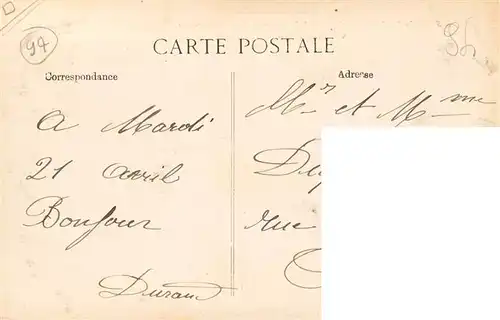 97
CARTE POSTALE
Correspondance
Adresse
a Mardi
21 avril
Bonjour
Durand
Mr et Mme
rue